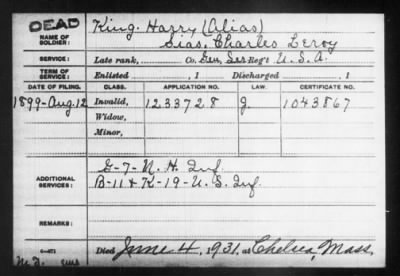 DEAD
NAME OF SOLDIER:
King, Harry (Alias)
Sias, Charles Leroy
SERVICE: Late rank, Co. Gen. Ser. Reg't U. S. A.
TERM OF SERVICE: Enlisted , 1 Discharged , 1
DATE OF FILING. CLASS. APPLICATION NO. LAW. CERTIFICATE NO.
1899-Aug 12 Invalid, 1233728 J. 1043867
Widow,
Minor,
ADDITIONAL SERVICES:
G-7-N. H. Inf.
B-11 & K-19-U. S. Inf.
REMARKS:
Died June 4, 1931, at Chelsea, Mass.